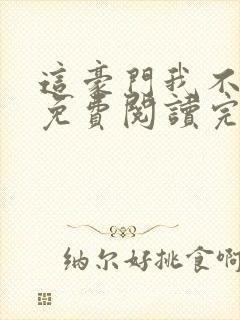 這豪門我不
免費閱讀完
纳尔好挑食啊